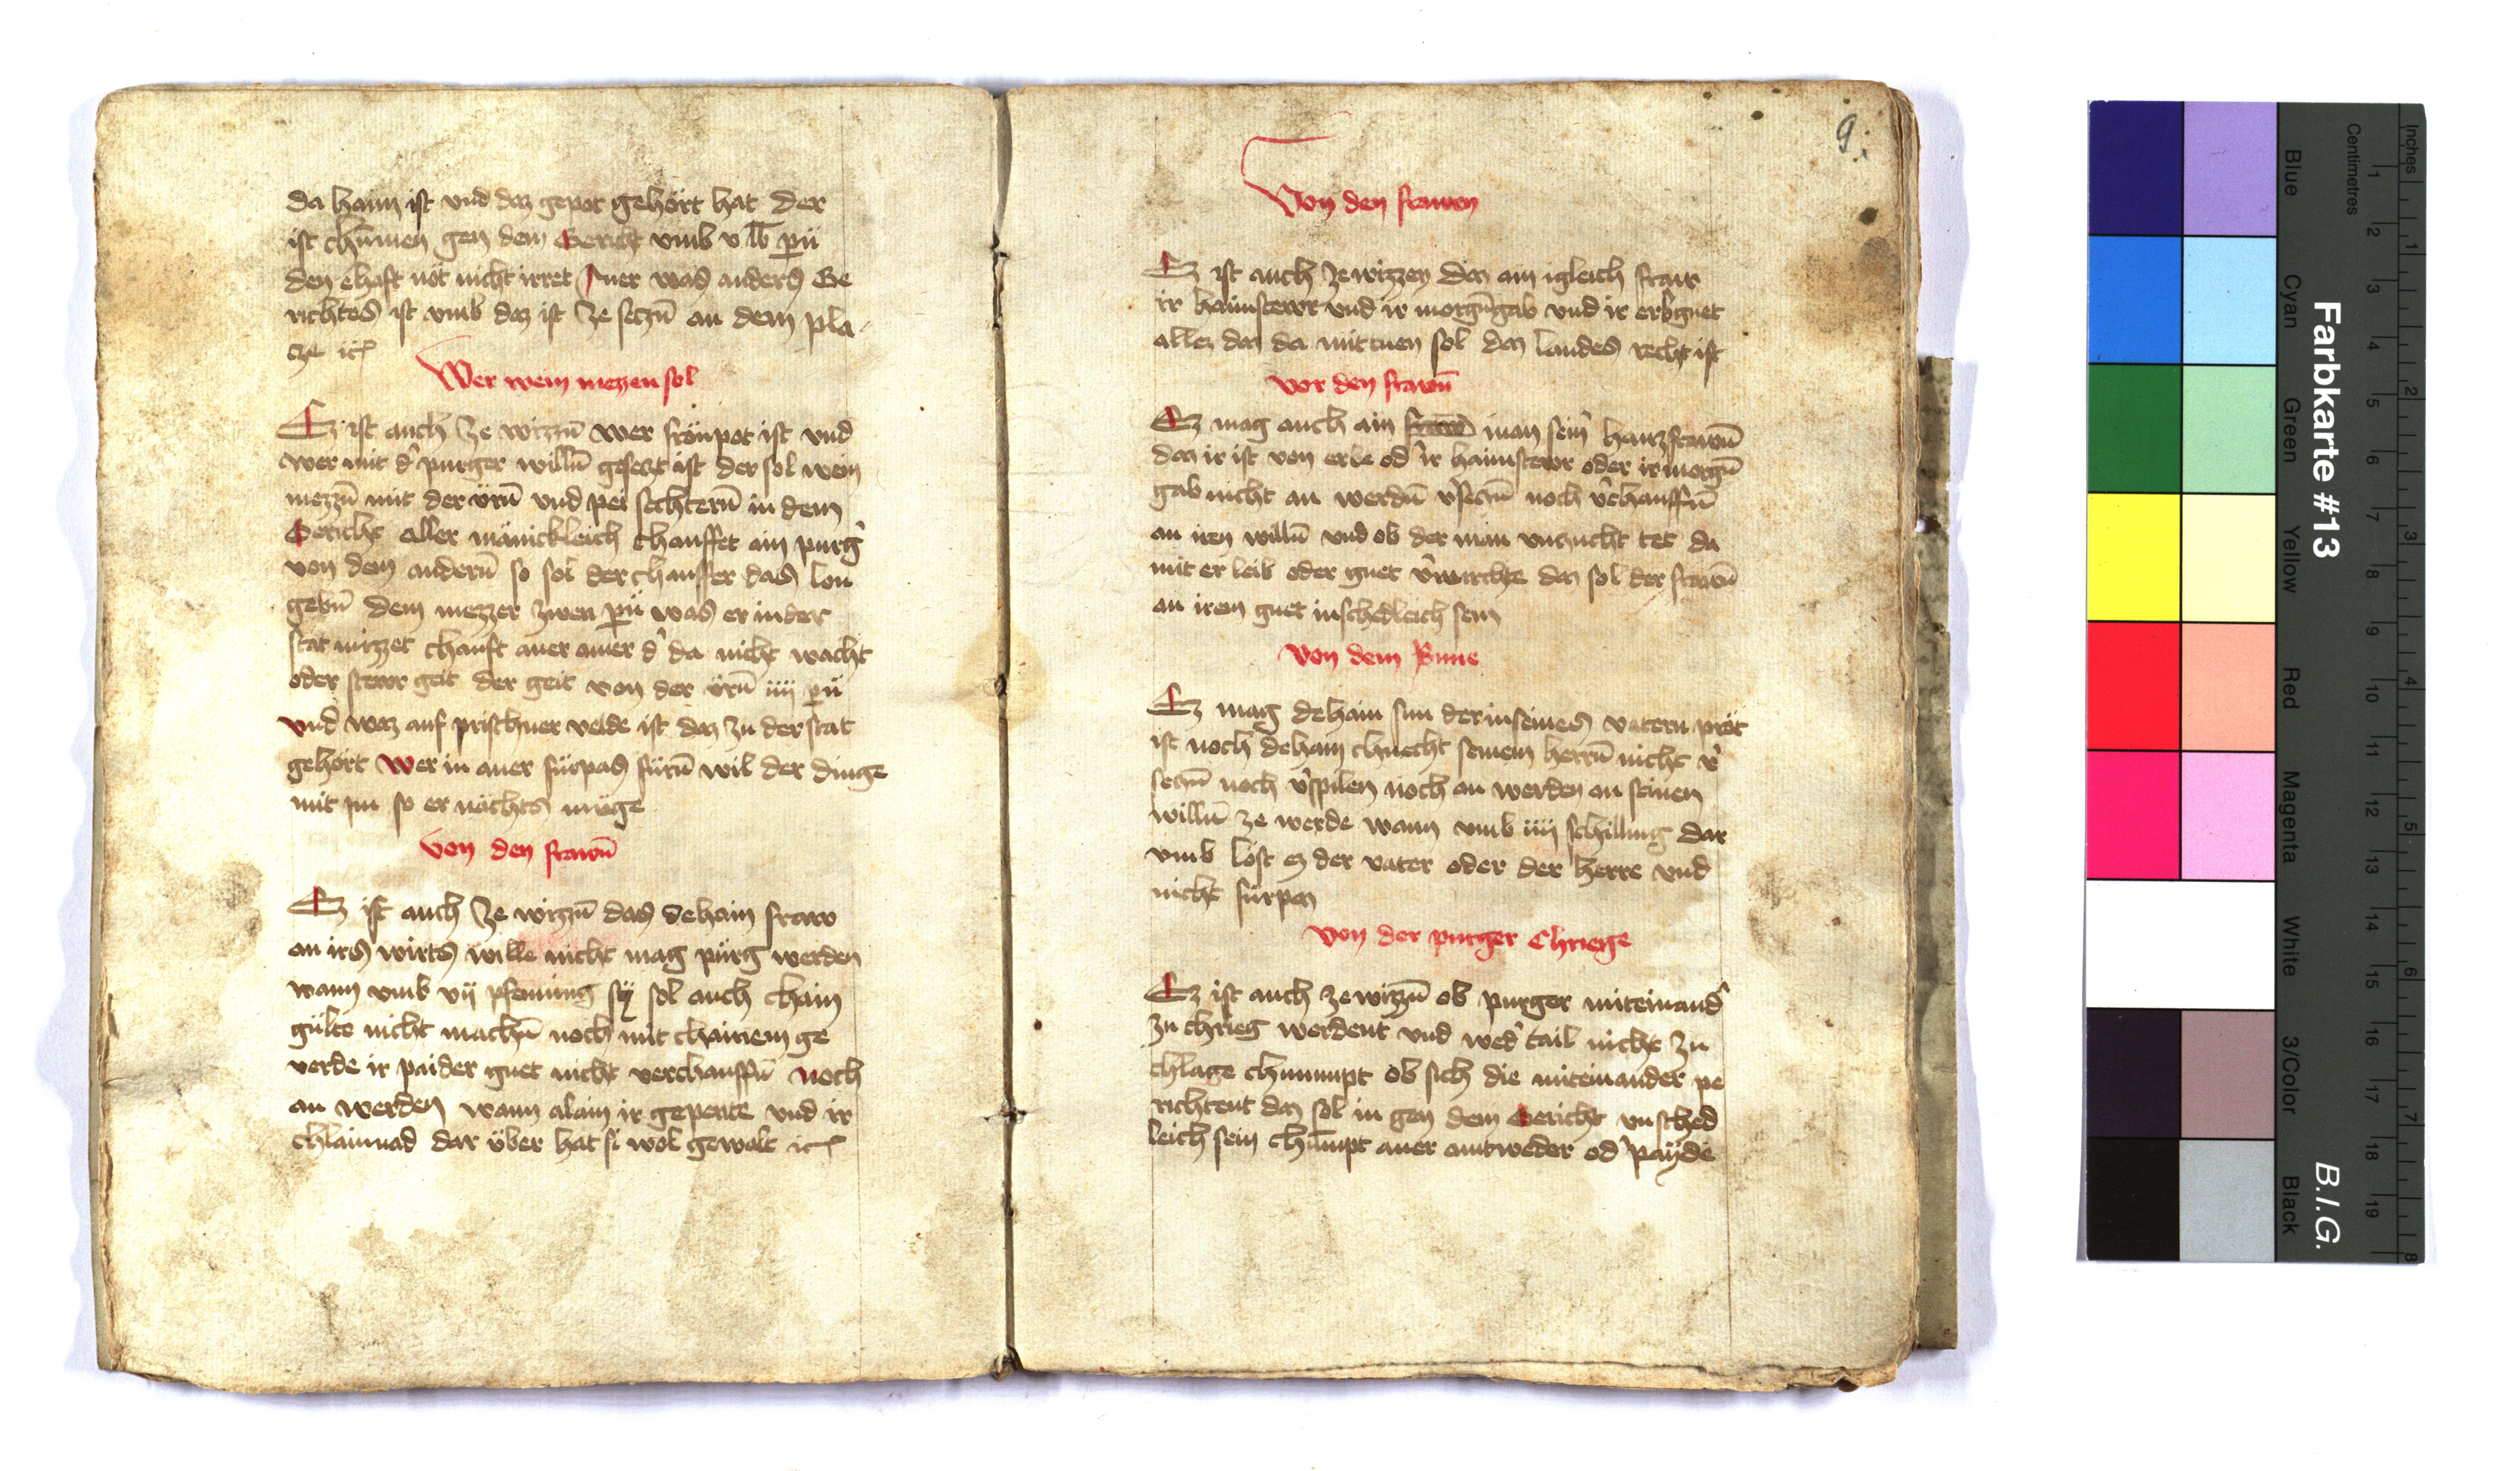 da haim ist vnd daz gepot gehört hat der
ist chümen gen dem Gericht vmb v lb pii
den ehaft nöt nicht irret Auer was anders Ge
richtes ist vmb daz ist ze seczn̄ an dem pla
cze etc
Wer wein mezzen sol
Ez ist auch ze wizzn̄ wer frönpot ist vnd
wer mit d' purger willn̄ gesetzt ist der sol wein
mezzn̄ mit der ürn̄ vnd pei sechtern̄ in dem
Gericht aller mänickleich chauffet ain purg'
von dem andern̄ so sol der chauffer das lon
gebn̄ dem mezzer zwen pü was er in der
stat mizzet chauft auer auer d' da nicht wacht
oder stewr geit der geit von der ürn̄ iiij pü
vnd waz auf prischner velde ist daz zu der stat
gehört Wer in auer fürpas fürn̄ wil der dinge
mit im so er nächts müge
Von den frawn̄
Ez ist auch ze wizzn̄ das dehain fraw
an irs wirts wille nicht mag pürg werden
wann vmb vij pfenning sÿ sol auch chain
gülte nicht machn̄ noch mit chainem ge
verde ir paider guet nicht verchauffn̄ noch
an werden wann alain ir gepente vnd ir
chlainnad dar über hat si wol gewalt etc
9.
Von den frawen
Ez ist auch ze wizzen daz ain igleich fraw
ir haimstewr vnd ir morgn̄gab vnd ir erbguet
allez daz da mit tuen sol daz landes recht ist
vor den frawn̄
Ez mag auch ain fraw man sein' hauzfrawn̄
daz ir ist von erbe od' ir haimstewr oder ir morgn̄
gab nicht an werdn̄ v'seczn̄ noch v'chauffn̄
an iren willn̄ vnd ob der man vnzucht tet da
mit er leib oder guet v'wurchte daz sol der frawn̄
an irem guet inschedleich sein
Von dem Sune
Ez mag dehain sun der in seines vatern pröt
ist noch dehain chnecht seinem herrn̄ nicht v'
seczn̄ noch v'spilen noch an werden an seinen
willn̄ ze werde wann vmb iiij schilling dar
vmb löst ez der vater oder der herre vnd
nicht fürpaz
Von der purger Chriege
Ez ist auch ze wizzn̄ ob purger miteinand'
zu chrieg werdent vnd wed' tail nicht zu
chlage chümmpt ob sich die miteinander pe
richtent daz sol in gen dem Gericht vnsched
leich sein chümpt auer antweder od' paÿde
Farbkarte #13
B.I.G.
Blue
Cyan
Green
Yellow
Red
Magenta
White
3/Color
Black
Centimetres
Inches
1
2
3
4
5
6
7
8
9
10
11
12
13
14
15
16
17
18
19
1
2
3
4
5
6
7
8